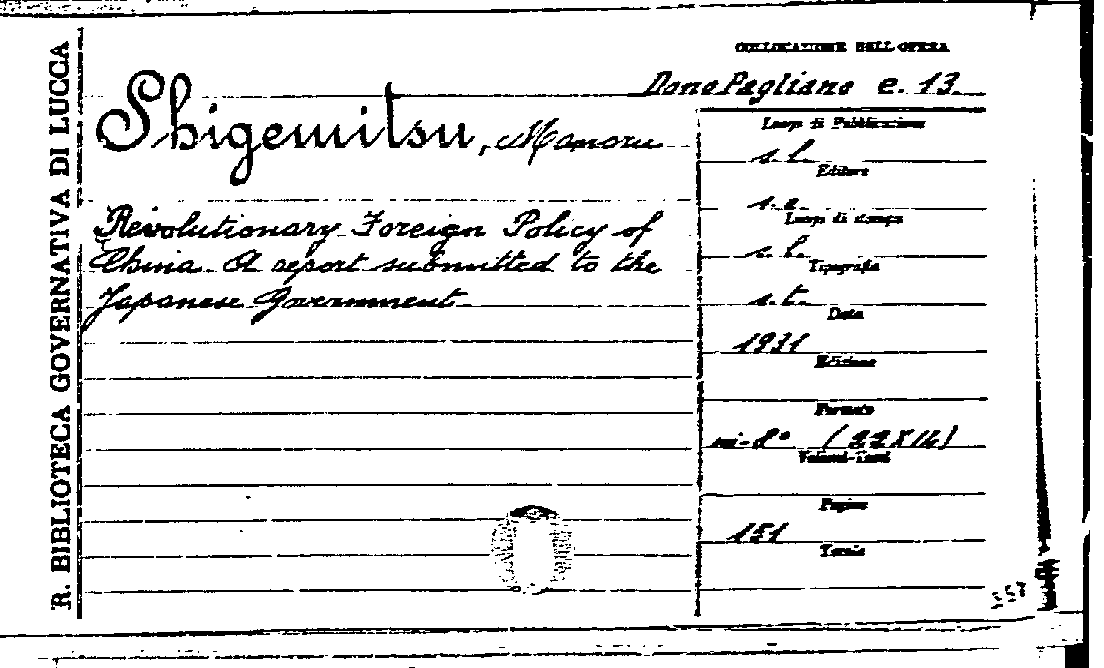 R. BIBLIOTECA GOVERNATIVA DI LUCCA
COLLOCAZIONE DELL'OPERA
Dono Pagliano e. 13.
Shigemitsu, Mamoru
Revolutionary Foreign Policy of
China. A report submitted to the
Japanese Government
Luogo di Pubblicazione
s. l.
Editore
s. e.
Luogo di stampa
s. l.
Tipografia
s. t.
Data
1931
Edizione
Formato
in-8° (22X16)
Volumi-Tomi
Pagine
151
Tavole